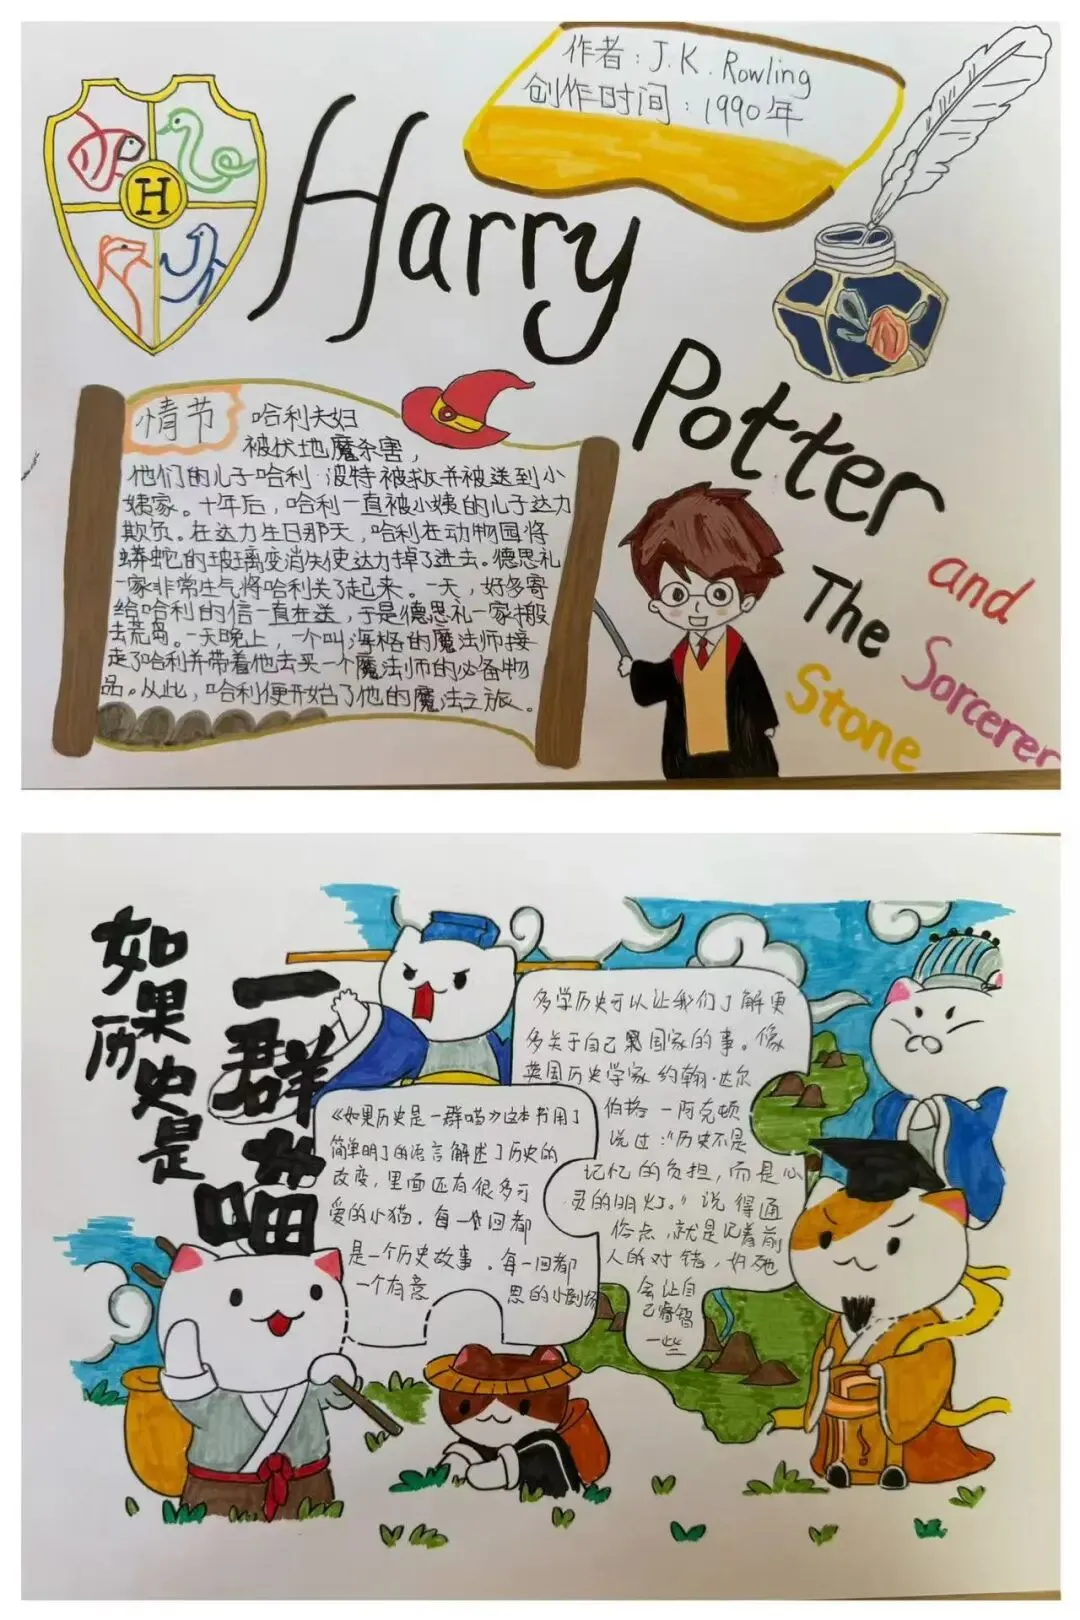 作者：J.K.Rowling
创作时间：1990年
H
Harry
Potter
and
The Sorcerer
Stone
情节
哈利夫妇
被伏地魔杀害，
他们的儿子哈利·波特被救并被送到小
姨家。十年后，哈利一直被小姨的儿子达力
欺负。在达力生日那天，哈利在动物园将
蟒蛇的玻璃变消失使达力掉了进去。德思礼
一家非常生气将哈利关了起来。一天，好多寄
给哈利的信一直在送，于是德思礼一家搬
去荒岛。一天晚上，一个叫海格的魔法师接
走了哈利并带着他去买一个魔法师的必备物
品。从此，哈利便开始了他的魔法之旅。
如果历史是
一群喵
多学历史可以让我们了解更
多关于自己国家的事。像
英国历史学家约翰·达尔
伯格—阿克顿
说过：“历史不是
记忆的负担，而是心
灵的明灯。”说得通
俗点，就是记着前
人的对错，好
会让自
己睿智
一些
《如果历史是一群喵》这本书用了
简单明了的语言解述了历史的
改变，里面还有很多可
爱的小猫，每一回都
是一个历史故事。每一回都
一个有意 思的小剧场